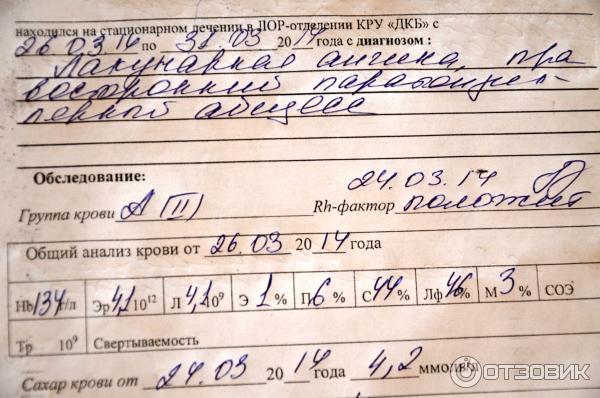 находился на стационарном лечении в ЛОР-отделении КРУ «ДКБ» с
26.03.14 по 31.03 2014 года с диагнозом :
Лакунарная ангина, пра
восторонний паратонзил-
лярный абсцесс
Обследование:
24.03.14
Группа крови A(II) Rh-фактор положит
Общий анализ крови от 26.03 2014 года
Hb 134 г/л Эр 4,1 10¹² Л 4,1 10⁹ Э 1 % П 6 % С 44 % Лф 46 % М 3 % СОЭ
Тр 10⁹ Свертываемость
Сахар крови от 24.03 2014 года 4,2 ммол
ОТЗОВИК